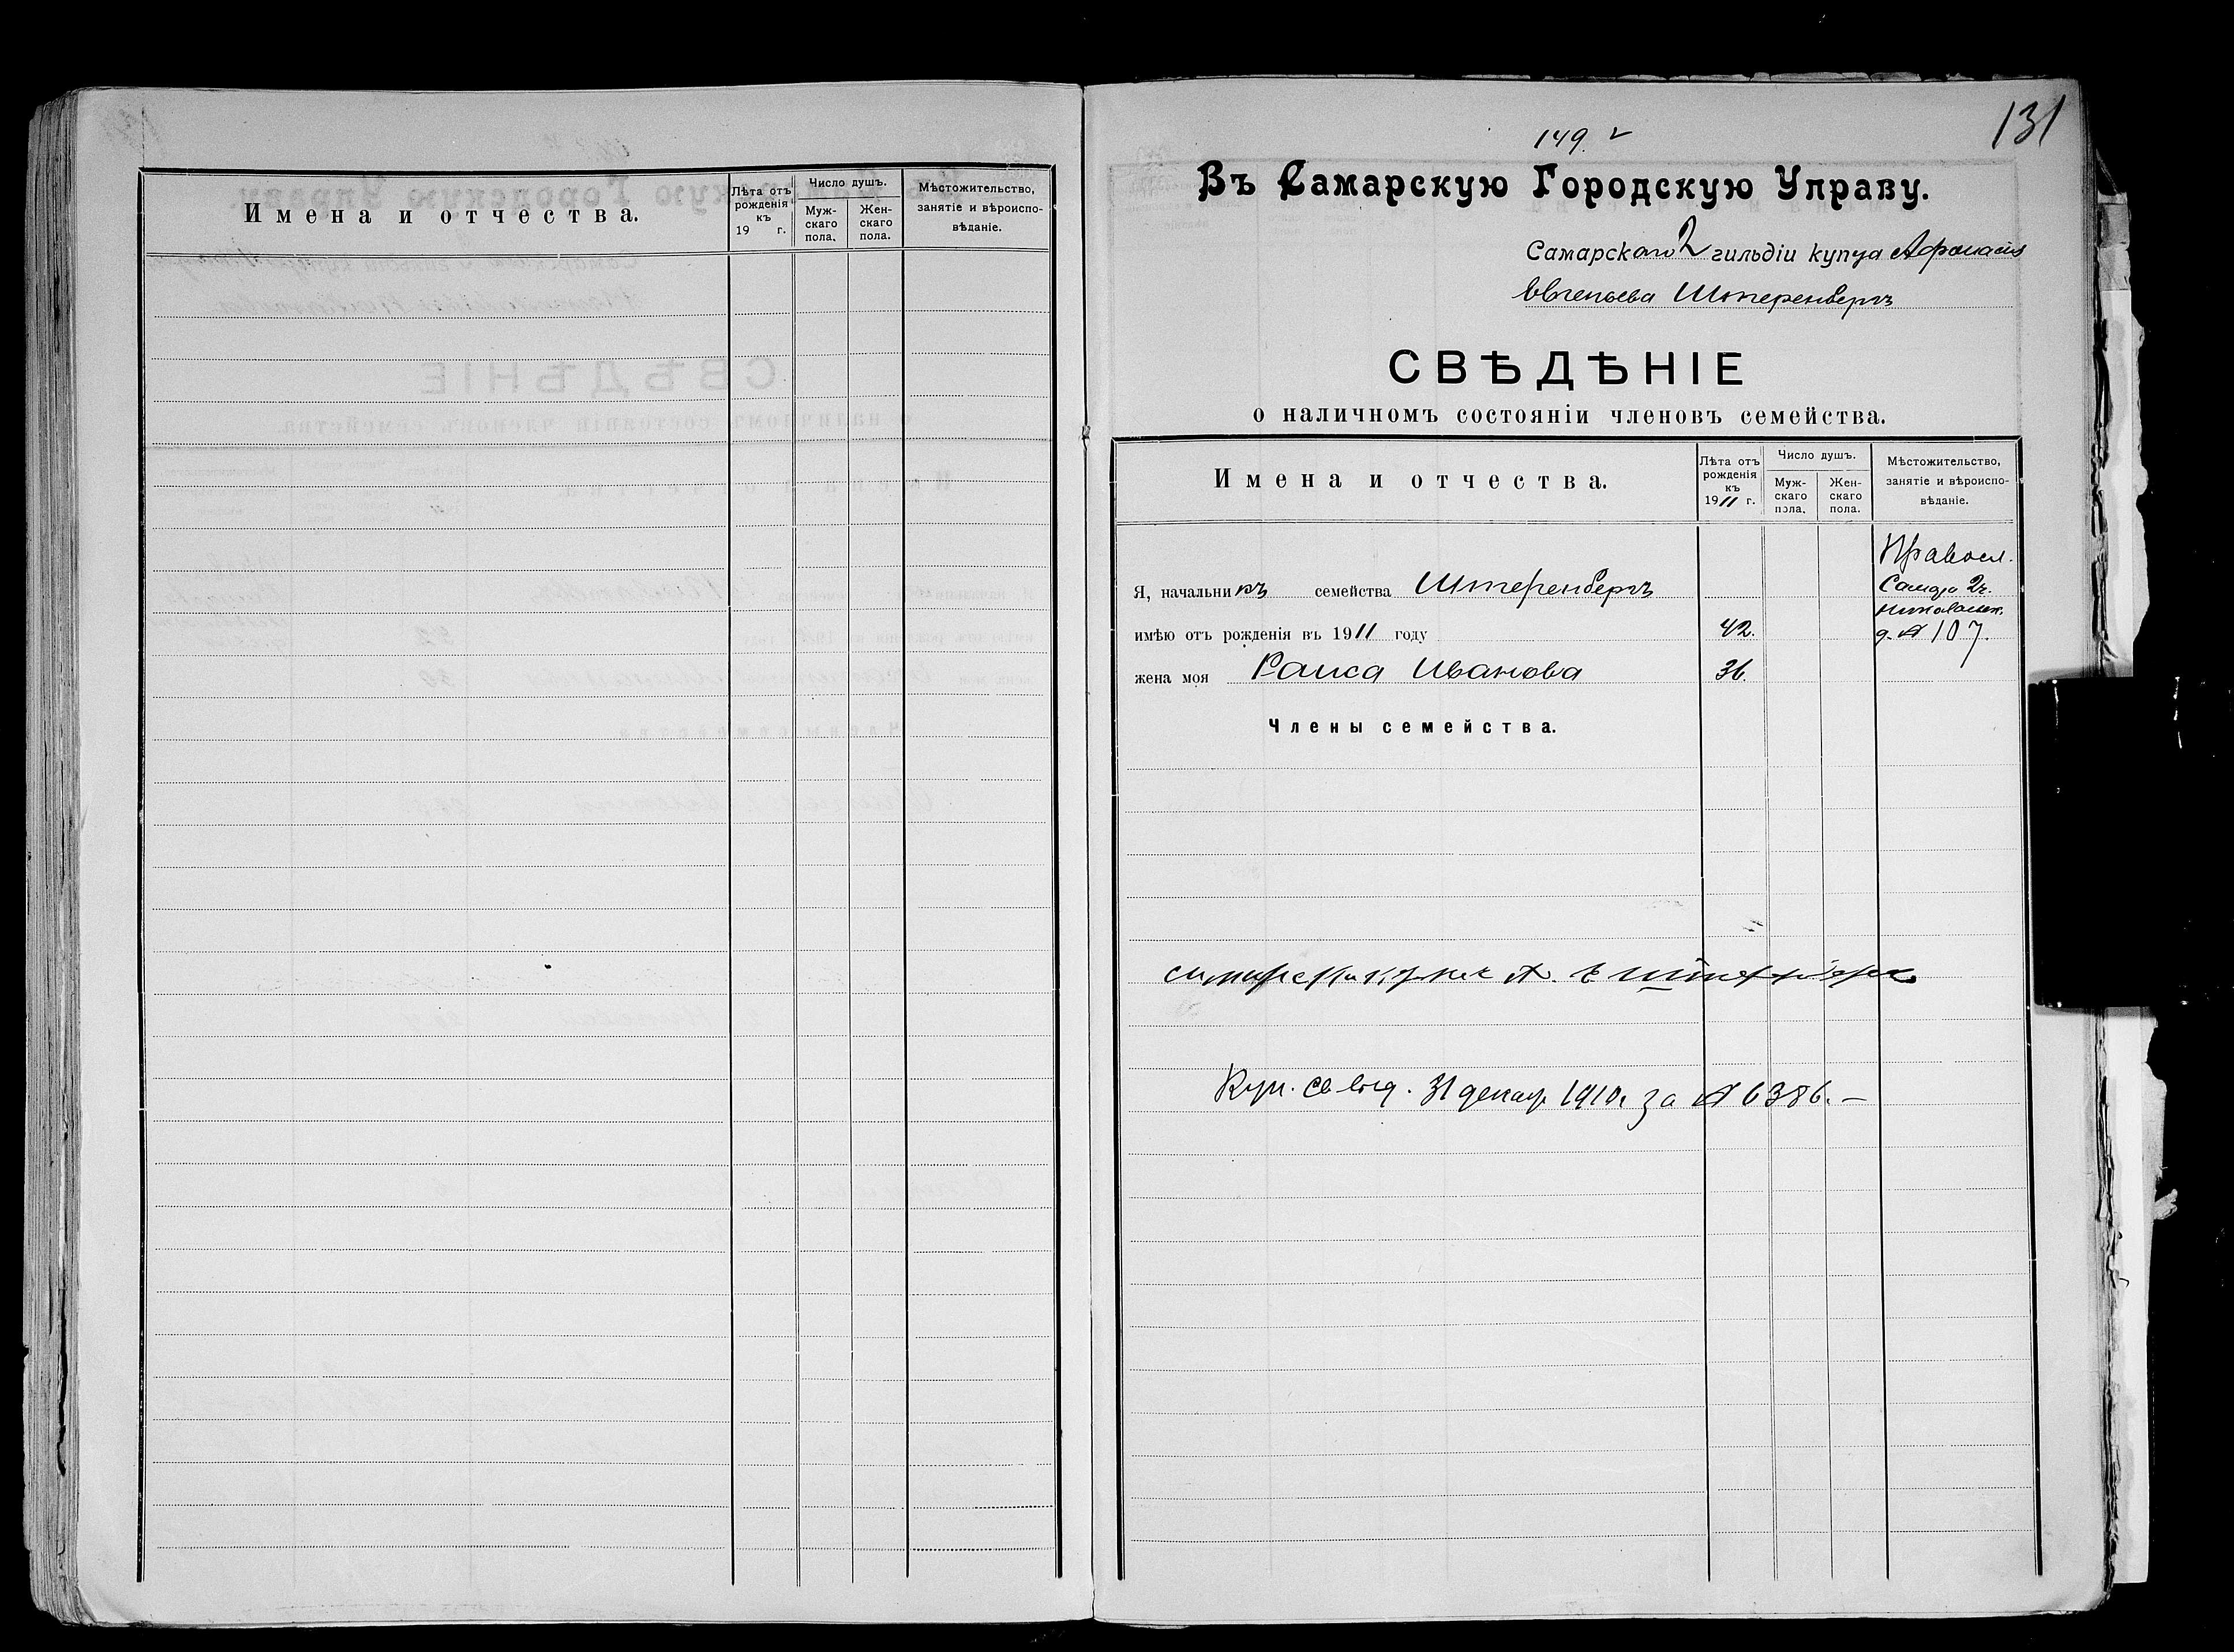 Имена и отчества.
Лѣта отъ рожденія къ 19 г.
Число душъ.
Муж-скаго пола.
Жен-скаго пола.
Мѣстожительство, занятіе и вѣроиспо-вѣданіе.
131
149.
Въ Самарскую Городскую Управу.
Самарскаго 2 гильдіи купца Афанасія
Евгеньева Штеренбергъ
СВѢДѢНІЕ
о наличномъ состояніи членовъ семейства.
Имена и отчества.
Лѣта отъ рожденія къ 1911 г.
Число душъ.
Муж-скаго пола.
Жен-скаго пола.
Мѣстожительство, занятіе и вѣроиспо-вѣданіе.
Правосл.
Я, начальникъ семейства Штеренбергъ
2ч.
имѣю отъ рожденія въ 1911 году 42.
д. № 107.
жена моя Раиса Иванова 36.
Члены семейства.
Куп. свид. 31 декаб. 1910г за № 6386. —